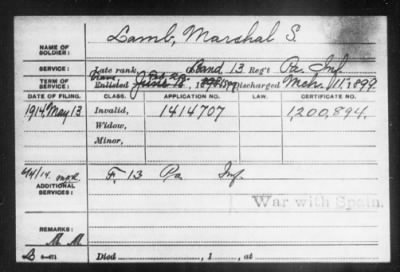 Lamb, Marshal S.
NAME OF SOLDIER:
SERVICE: Late rank, Band 13 Reg't Pa. Inf.
TERM OF SERVICE: Enlisted Discharged Mch. 11, 1899
DATE OF FILING. CLASS. APPLICATION NO. LAW. CERTIFICATE NO.
1914 May 13 Invalid, 1414707 1,200,894.
Widow,
Minor,
ADDITIONAL SERVICES: F, 13 Pa Inf.
War with Spain.
REMARKS:
M M
Died , 1 , at